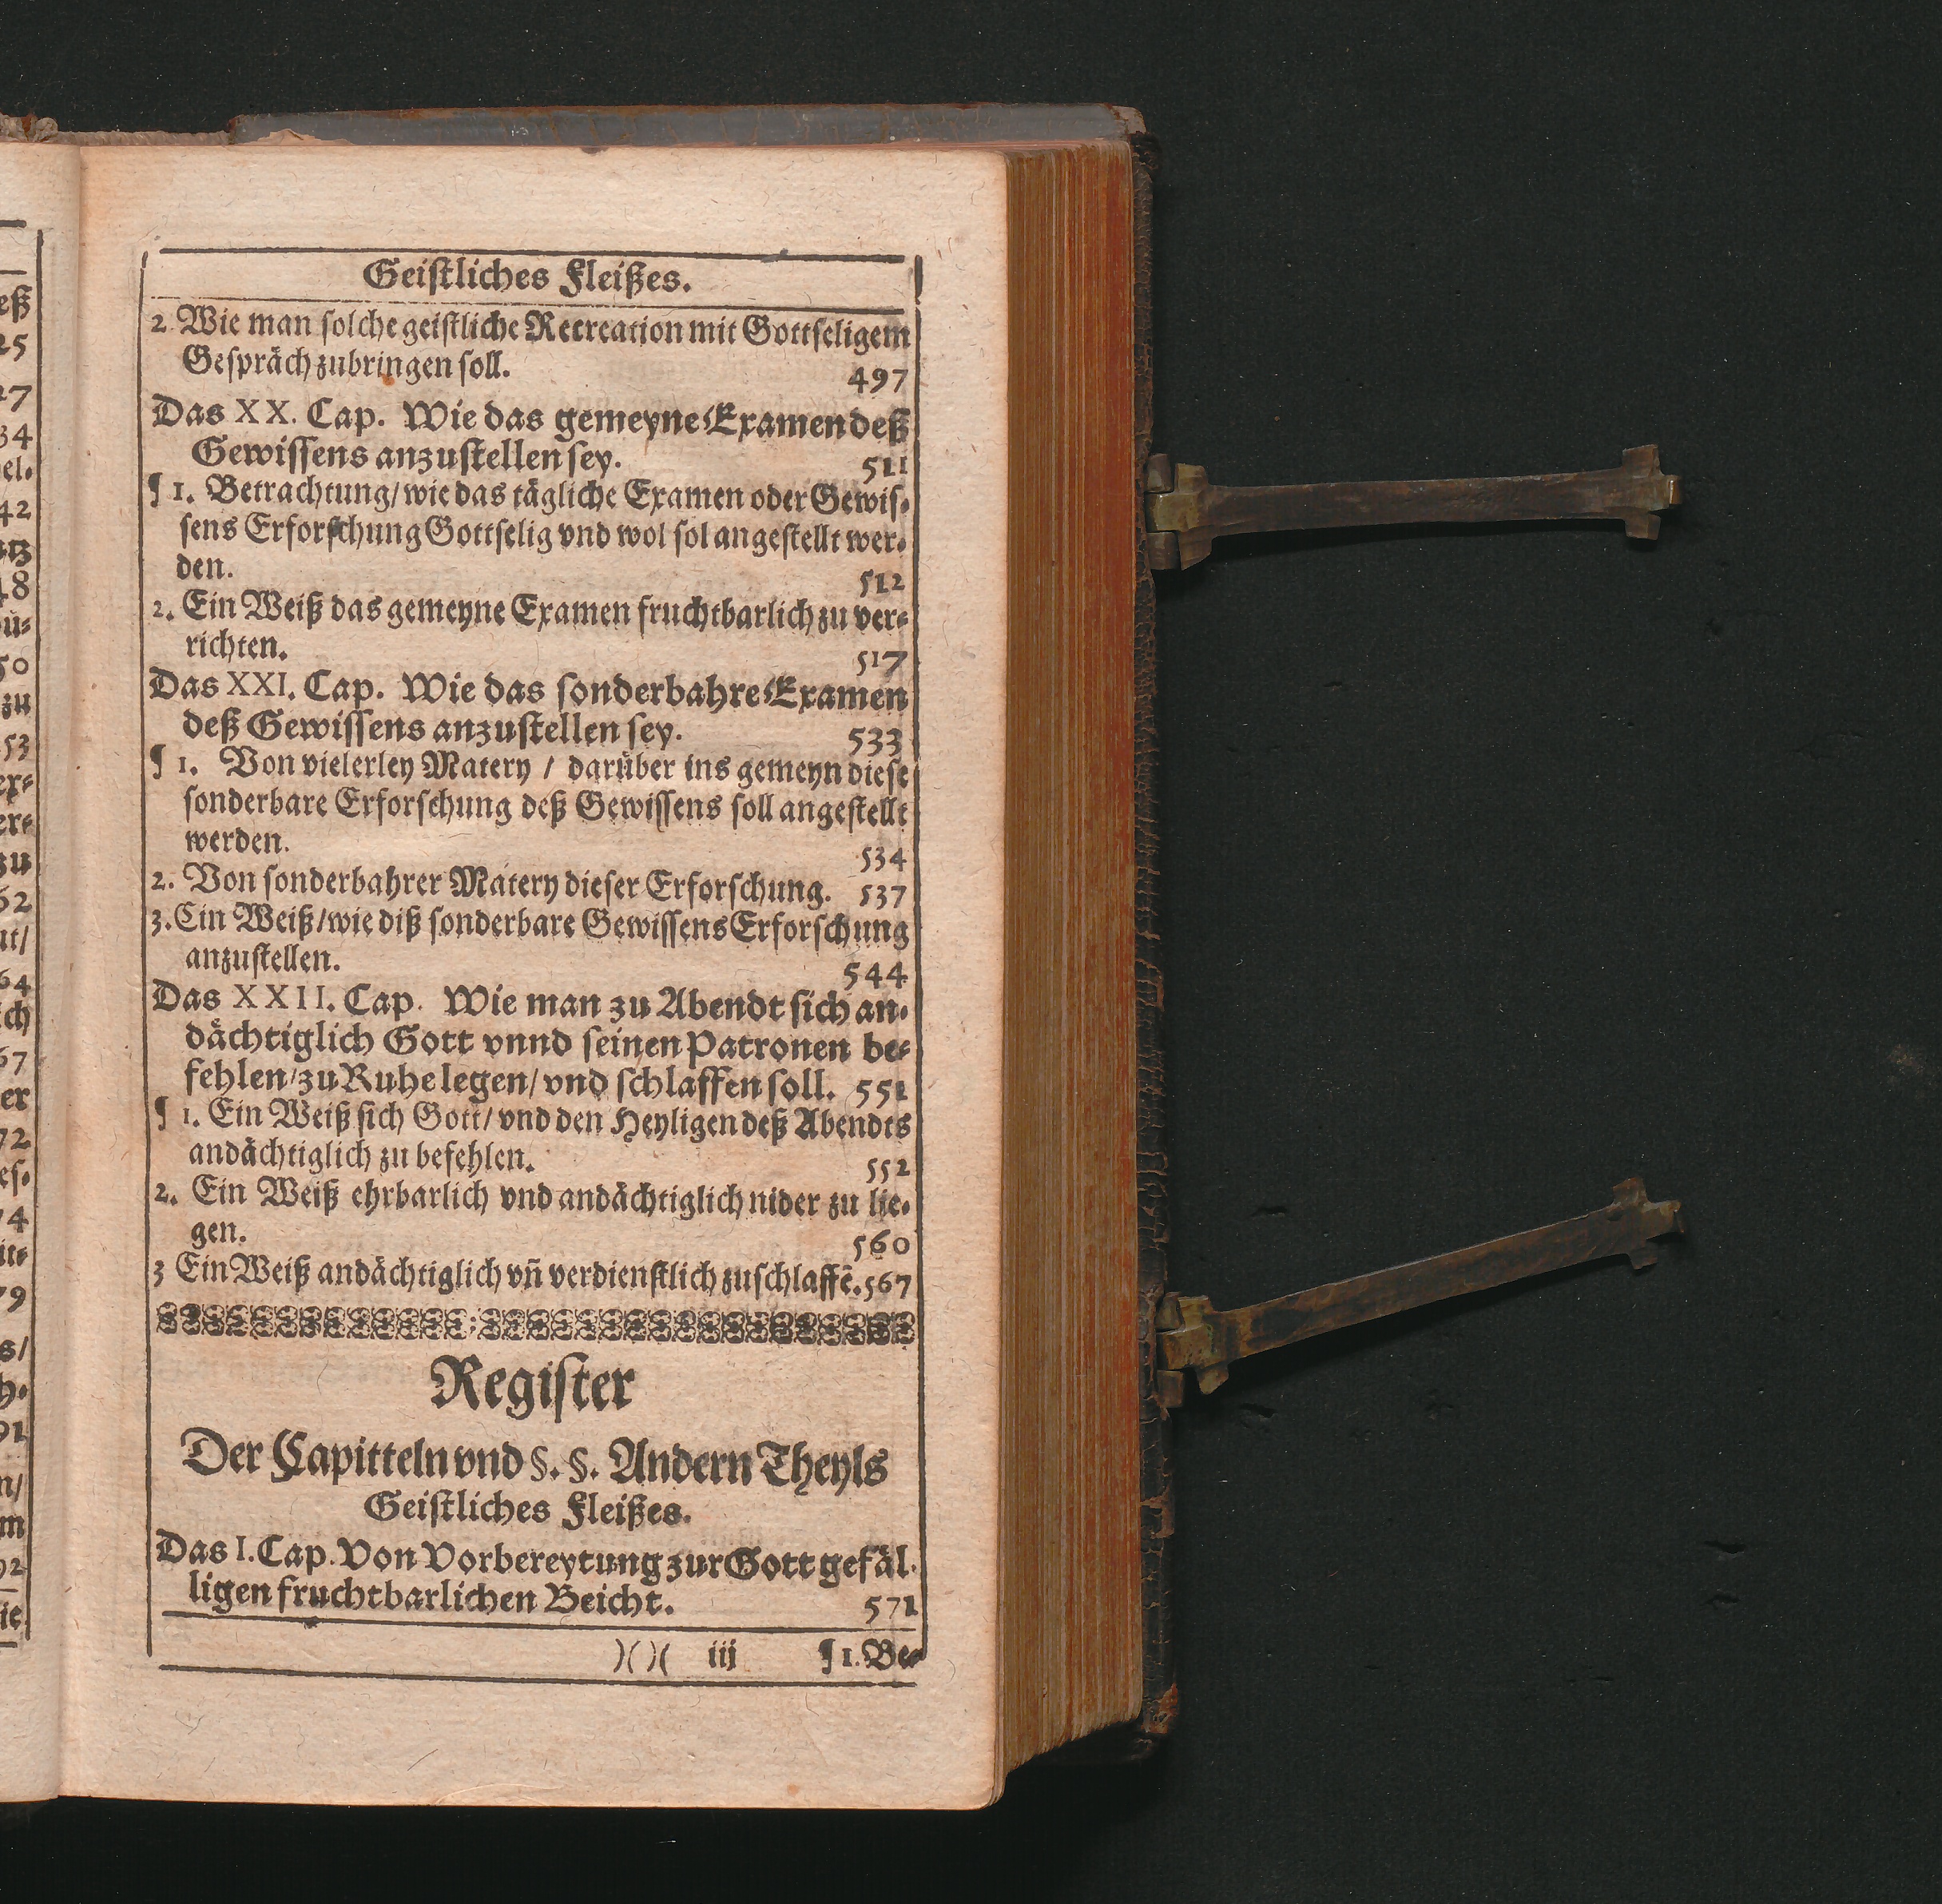 Geistliches Fleißes.
2 Wie man solche geistliche Recreation mit Gottseligem
Gespräch zubringen soll. 497
Das XX. Cap. Wie das gemeyne Examen deß
Gewissens anzustellen sey. 511
¶ 1. Betrachtung/ wie das tägliche Examen oder Gewis-
sens Erforschung Gottselig vnd wol sol angestellt wer-
den. 512
2. Ein Weiß das gemeyne Examen fruchtbarlich zu ver-
richten. 517
Das XXI. Cap. Wie das sonderbahre Examen
deß Gewissens anzustellen sey. 533
¶ 1. Von vielerley Matery / darüber ins gemeyn diese
sonderbare Erforschung deß Gewissens soll angestellt
werden. 534
2. Von sonderbahrer Matery dieser Erforschung. 537
3. Ein Weiß/ wie diß sonderbare Gewissens Erforschung
anzustellen. 544
Das XXII. Cap. Wie man zu Abendt sich an-
dächtiglich Gott vnnd seinen Patronen be-
fehlen/ zu Ruhe legen/ vnd schlaffen soll. 551
¶ 1. Ein Weiß sich Gott/ vnd den Heyligen deß Abendts
andächtiglich zu befehlen. 552
2. Ein Weiß ehrbarlich vnd andächtiglich nider zu lie-
gen. 560
3 Ein Weiß andächtiglich vñ verdienstlich zuschlaffẽ. 567
Register
Der Capitteln vnd §. §. Andern Theyls
Geistliches Fleißes.
Das I. Cap. Von Vorbereytung zur Gott gefäl-
ligen fruchtbarlichen Beicht. 571
)( )( iij ¶ 1. Be-